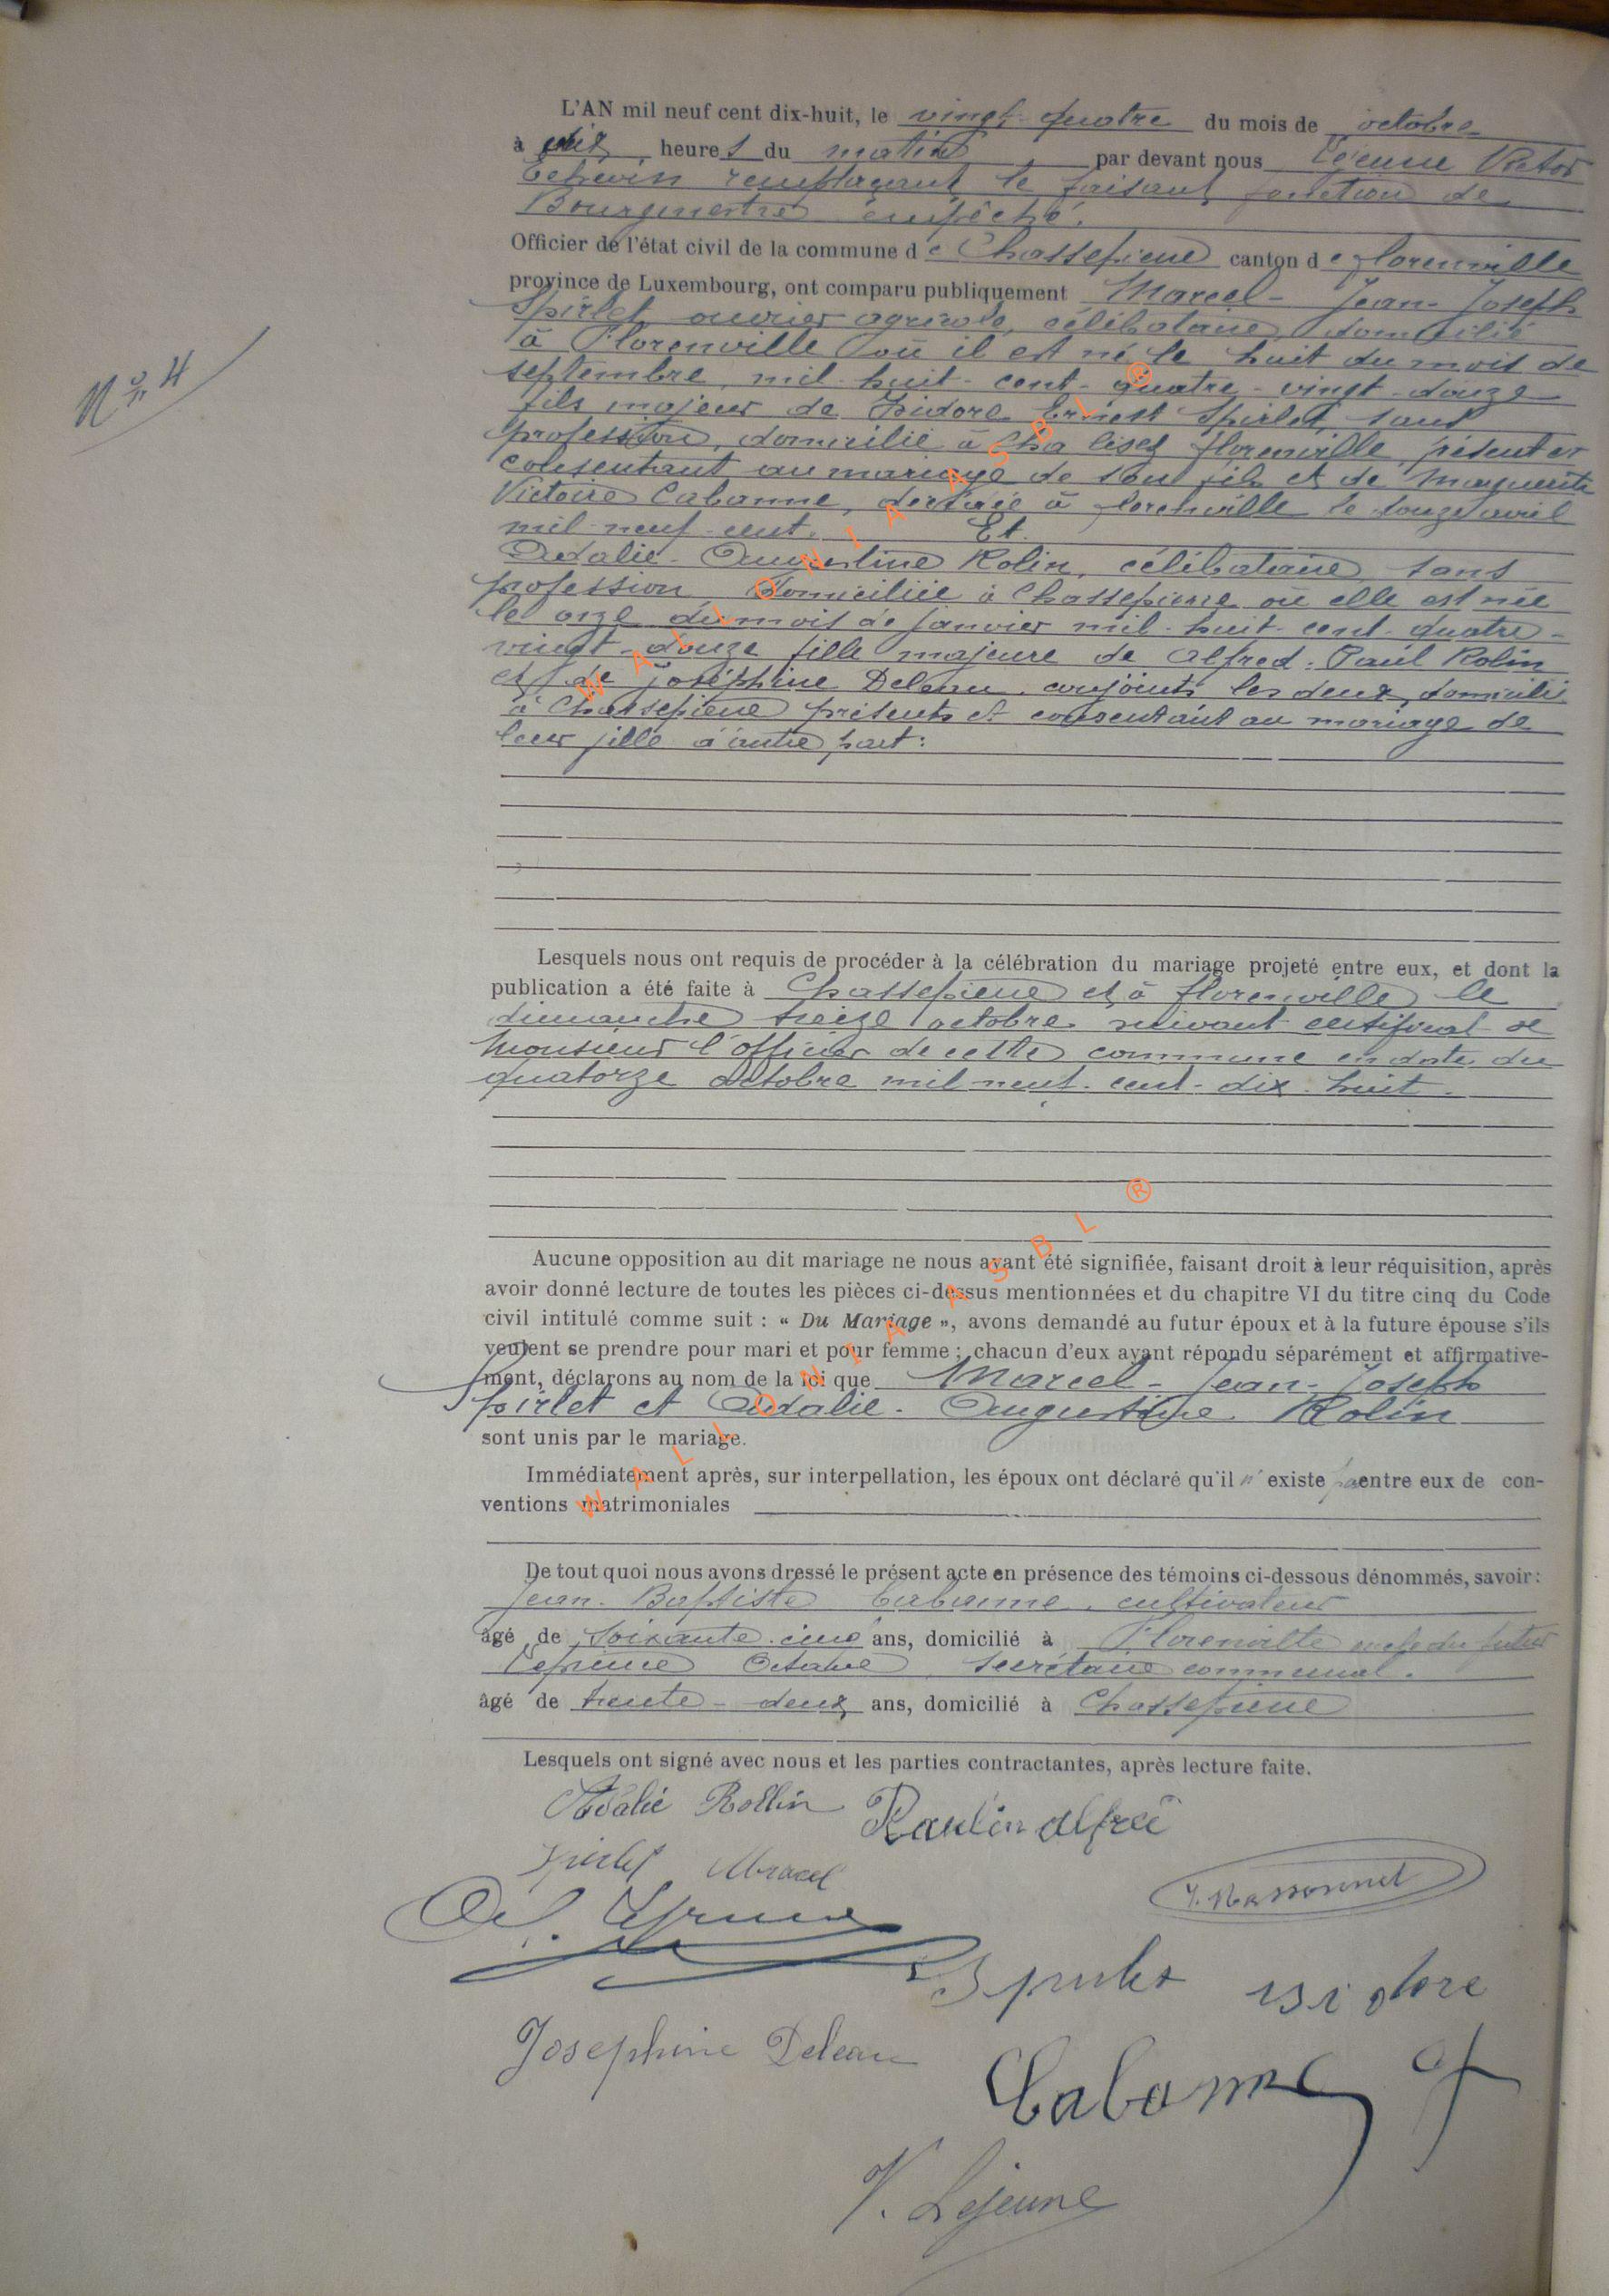 L'AN mil neuf cent dix-huit, le vingt-quatre du mois de octobre
à heures du matin, par devant nous Lejeune Victor
Echevin remplaçant le faisant fonction de
Bourgmestre empêché.
Officier de l'état civil de la commune de Chassepierre canton de Florenville
province de Luxembourg, ont comparu publiquement Marcel-Jean-Joseph
Spirlet ouvrier agricole, célibataire, domicilié
à Florenville où il est né le huit du mois de
septembre mil-huit-cent-quatre-vingt-douze
fils majeur de Isidore Ernest Spirlet, sans
profession, domicilié à Florenville présent et
consentant au mariage de son fils et de Marguerite
Victoire Cabanne, décédée à Florenville le douze avril
mil-neuf-cent. Et
Adalie-Augustine Rolin, célibataire, sans
profession, domiciliée à Chassepierre où elle est née
le onze du mois de janvier mil-huit-cent-quatre-
vingt-douze fille majeure de Alfred-Paul Rolin
et de Joséphine Deleau conjoints les deux domiciliés
à Chassepierre présents et consentant au mariage de
leur fille d'autre part:
N° 4
Lesquels nous ont requis de procéder à la célébration du mariage projeté entre eux, et dont la
publication a été faite à Chassepierre et à Florenville le
dimanche treize octobre suivant certificat de
Monsieur l'officier de cette commune en date du
quatorze octobre mil-neuf-cent-dix-huit.
Aucune opposition au dit mariage ne nous ayant été signifiée, faisant droit à leur réquisition, après
avoir donné lecture de toutes les pièces ci-dessus mentionnées et du chapitre VI du titre cinq du Code
civil intitulé comme suit : « Du Mariage », avons demandé au futur époux et à la future épouse s'ils
veulent se prendre pour mari et pour femme ; chacun d'eux ayant répondu séparément et affirmative-
ment, déclarons au nom de la loi que Marcel-Jean-Joseph
Spirlet et Adalie-Augustine Rolin
sont unis par le mariage.
Immédiatement après, sur interpellation, les époux ont déclaré qu'il n'existe pas entre eux de con-
ventions matrimoniales
De tout quoi nous avons dressé le présent acte en présence des témoins ci-dessous dénommés, savoir :
Jean-Baptiste Cabanne, cultivateur
âgé de soixante-cinq ans, domicilié à Florenville oncle du futur
Octave, secrétaire communal.
âgé de trente-deux ans, domicilié à Chassepierre
Lesquels ont signé avec nous et les parties contractantes, après lecture faite.
Adalie Rollin Raulin Alfred
Spirlet Marcel
J. Massonnet
Spirlet isidore
Josephine Deleau
Cabanne
V. Lejeune
WALLONIA ASBL ®
WALLONIA ASBL ®